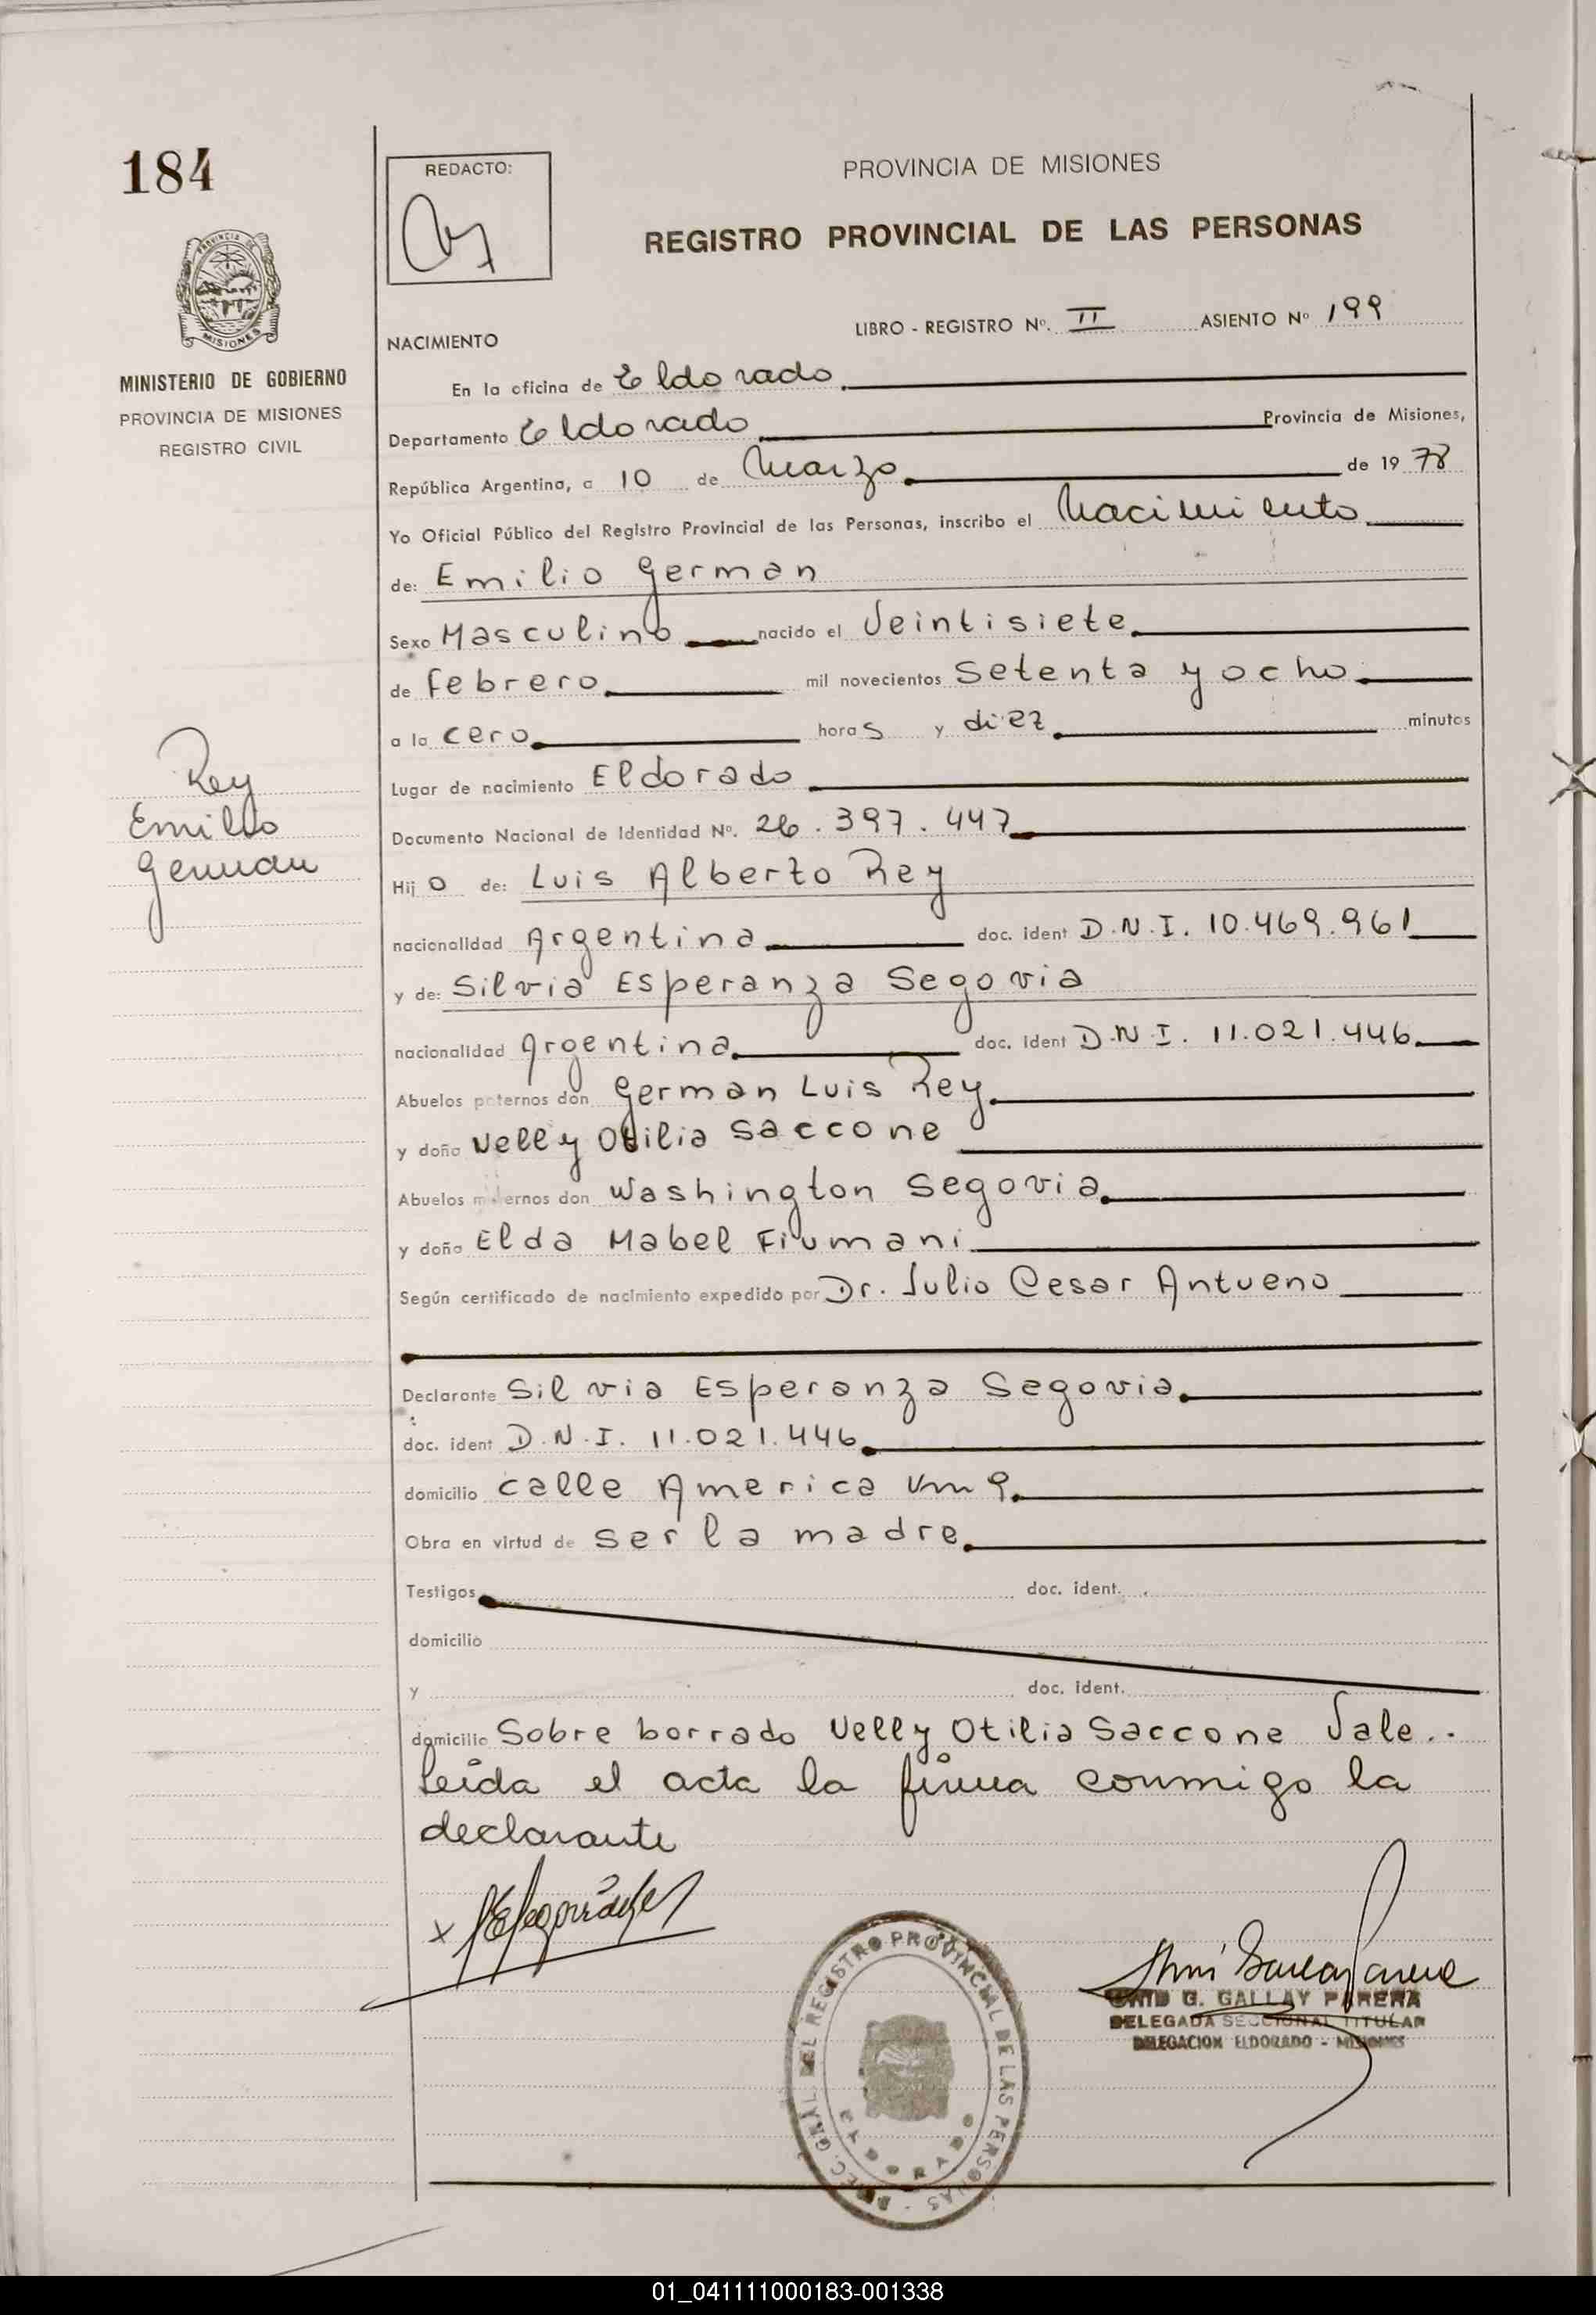 184
REDACTO:
PROVINCIA DE MISIONES
REGISTRO PROVINCIAL DE LAS PERSONAS
PROVINCIA DE
MISIONES
MINISTERIO DE GOBIERNO
PROVINCIA DE MISIONES
REGISTRO CIVIL
LIBRO - REGISTRO Nº. II ASIENTO Nº 199
NACIMIENTO
En la oficina de Eldorado
Departamento Eldorado Provincia de Misiones,
República Argentina, a 10 de Marzo de 19 78
Yo Oficial Público del Registro Provincial de las Personas, inscribo el Nacimiento
de: Emilio German
Sexo Masculino nacido el Veintisiete
de febrero mil novecientos setenta y ocho
a la cero horas y diez minutos
Lugar de nacimiento Eldorado
Documento Nacional de Identidad Nº. 26.397.447
Rey
Emilio
German
Hijo de: Luis Alberto Rey
nacionalidad Argentina doc. ident D.N.I. 10.469.961
y de: Silvia Esperanza Segovia
nacionalidad Argentina doc. ident D.N.I. 11.021.446
Abuelos paternos don German Luis Rey
y doña Nelly Otilia Saccone
Abuelos maternos don Washington Segovia
y doña Elda Mabel Fiumani
Según certificado de nacimiento expedido por Dr. Julio Cesar Antueno
Declarante Silvia Esperanza Segovia
doc. ident D.N.I. 11.021.446
domicilio calle America Km 9
Obra en virtud de ser la madre
Testigos doc. ident.
domicilio
y doc. ident.
domicilio Sobre borrado Nelly Otilia Saccone Vale.-
Leida el acta la firma conmigo la
declarante
G. GALLAY PARERA
DELEGADA SECCIONAL TITULAR
DELEGACION ELDORADO - MISIONES
DIREC. GRAL. DEL REGISTRO PROVINCIAL DE LAS PERSONAS -
ELDORADO
01_041111000183-001338